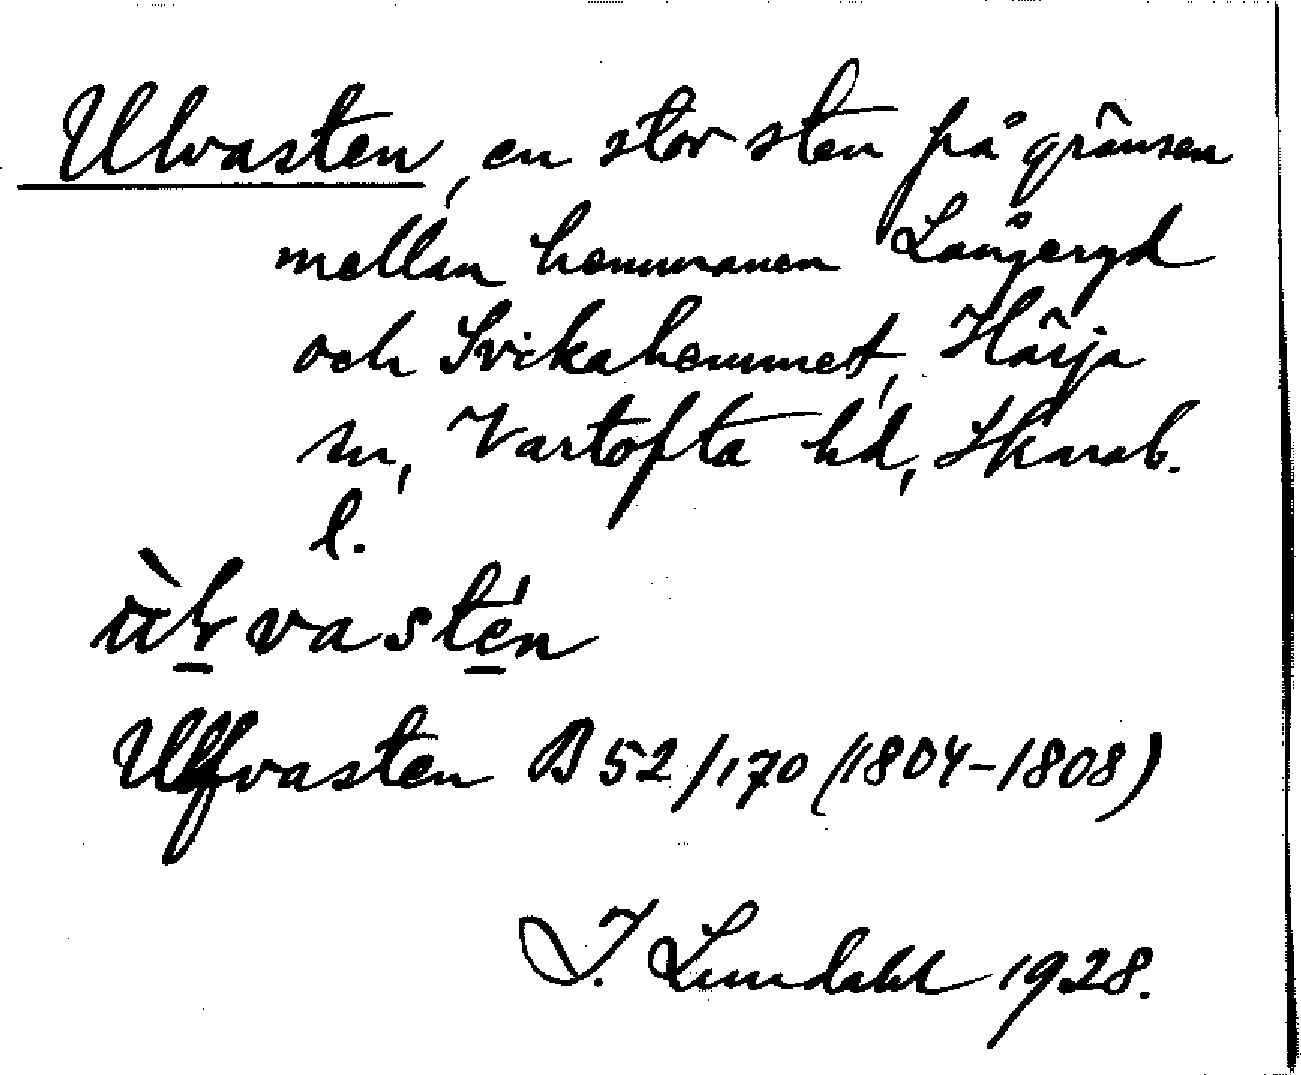 Ulvasten, en stor sten på gränsen
mellan hemmanen Långeryd
och Svikahemmet, Härja
sn, Vartofta hd, Skarab.
l.
Ulfvasten B 52/170 (1804-1808)
I. Lundahl 1928.